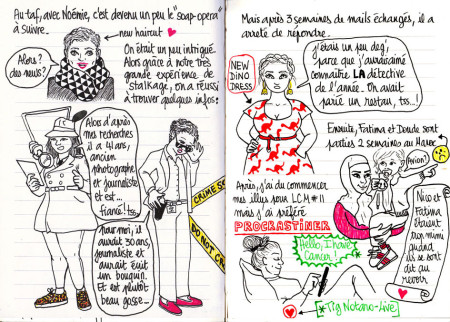 Au taf, avec Noémie, c'est devenu un peu le "soap-opera"
à suivre.
new haircut
Alors?
des neufs?
On était un peu intrigué.
Alors grâce à notre très
grande expérience de
"stalkage", on a réussi
à trouver quelques infos:
Alors d'après
mes recherches
il a 41 ans,
ancien
photographe
et journaliste
et est...
fiancé! tss..
Pour moi, il
aurait 30 ans,
journaliste et
aurait écrit
un bouquin.
Et est plutôt
beau gosse...
CRIME SC
DO NOT CR
Mais après 3 semaines de mails échangés, il a
arrêté de répondre.
NEW
DINO
DRESS
J'étais un peu deg',
parce que j'aurais aimé
connaître LA détective
de l'année. On avait
parié un restau, tss...!
Ensuite, Fatima et Doude sont
parties 2 semaines au Maroc
Avion?
Après, j'ai dû commencer
mes illus pour LCM #11
mais j'ai préféré
PROCRASTINER
Hello, I have
Cancer!
*Tig Notaro - Live
Nico et
Fatima
étaient
trop mimi
quand
ils se
sont dit
au
revoir